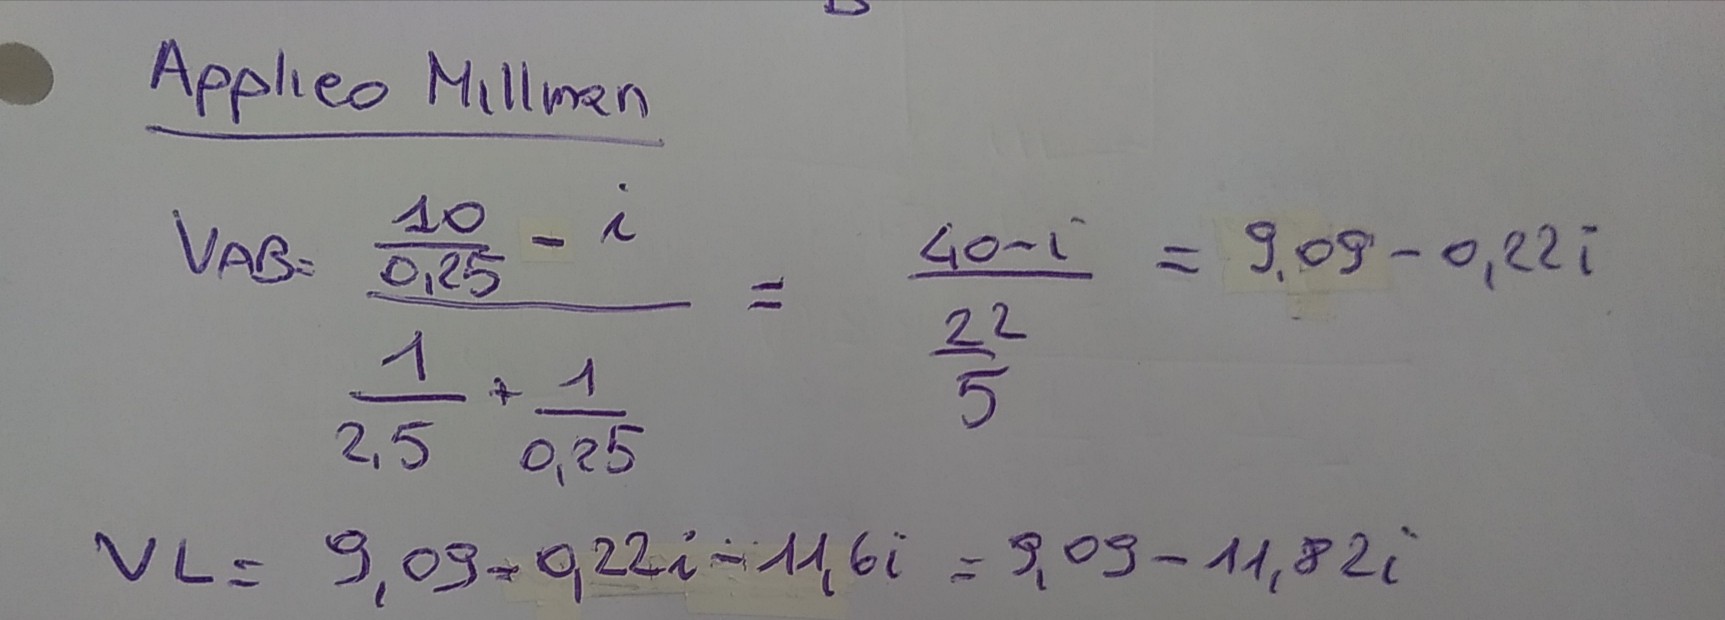 Applico Millman
VAB= (10/0,25 - i) / (1/2,5 + 1/0,25) = (40-i) / (22/5) = 9,09-0,22i
VL= 9,09-0,22i-11,6i = 9,09-11,82i